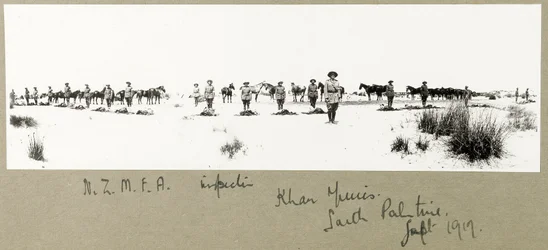 N.Z.M.F.A. inspectin
Khan Yunis.
South Palestine.
Sept 1917.